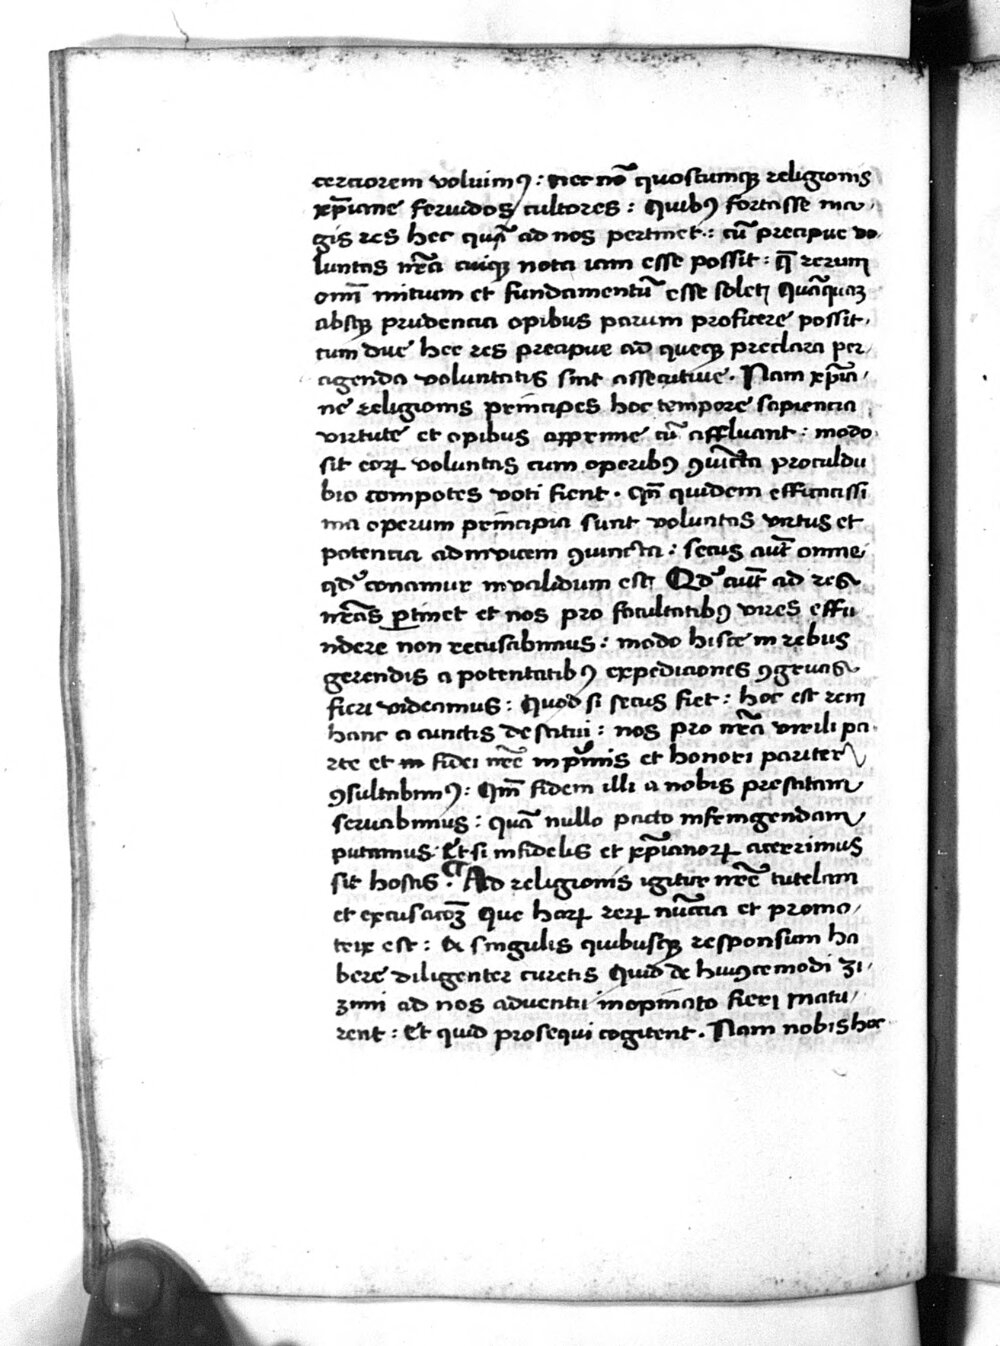 cerciorem voluimꝯ : nec nō quoscumqꝫ religionis
xp̄iane feruidos cultores : Quibꝯ fortasse ma/
gis res hec quā ad nos pertinet : cū precipue vo/
luntas nr̄a cuiqꝫ nota iam esse possit : q̄ rerum
om̄ initium et fundamentū esse solet Quāquaꝫ
absqꝫ prudencia opibus parum proficere possit/
tum due hec res precipue ad queqꝫ preclara per/
agenda voluntatis sint assecutiue. Nam xp̄ia/
ne religionis principes hoc tempore sapiencia
virtute et opibus apprime cū affluant : modo
sit eorꝝ voluntas cum operibꝯ ꝯiūcta proculdu
bio compotes voti fient. Qn̄ quidem efficacissi
ma operum principia sunt voluntas virtus et
potencia adinuicem ꝯiuncta : secus aūt omne
qd̓ conamur inualidum est Qd̓ aūt ad res
nr̄as ꝑtinet et nos pro facultatibꝯ vires effu
ndere non recusabimus : modo hisce in rebus
gerendis a potentatibꝯ expediciones ꝯgruas
fieri videamus : Quod si secus fiet : hoc est rem
hanc a cunctis destitui : nos pro nr̄a virili pa/
rte et in fidei nr̄e inp̄mis et honori pariter
ꝯsultabimꝯ : Qm̄ fidem illi a nobis prestitam
seruabimus : quā nullo pacto infringendam
putamus. Et si infidelis et xp̄ianorꝝ acerrimus
sit hostis. ¶ Ad religionis igitur nr̄e tutelam
et excusacōꝫ Que harꝝ rerꝝ nūccia et promo/
trix est : A singulis quibusqꝫ responsum ha
bere diligenter curetis Quid de huiꝯcemodi Zi/
zimi ad nos aduentu inopinato fieri matu/
rent : Et quid prosequi cogitent. Nam nobis hoc